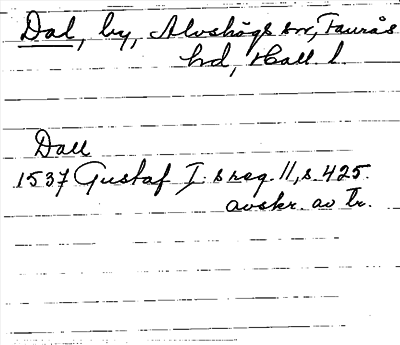 Dal, by, Alvshögs sn, Faurås
hd, Hall. l.
Dall
1537 Gustaf I:s reg. 11, s. 425.
avskr. av Tr.